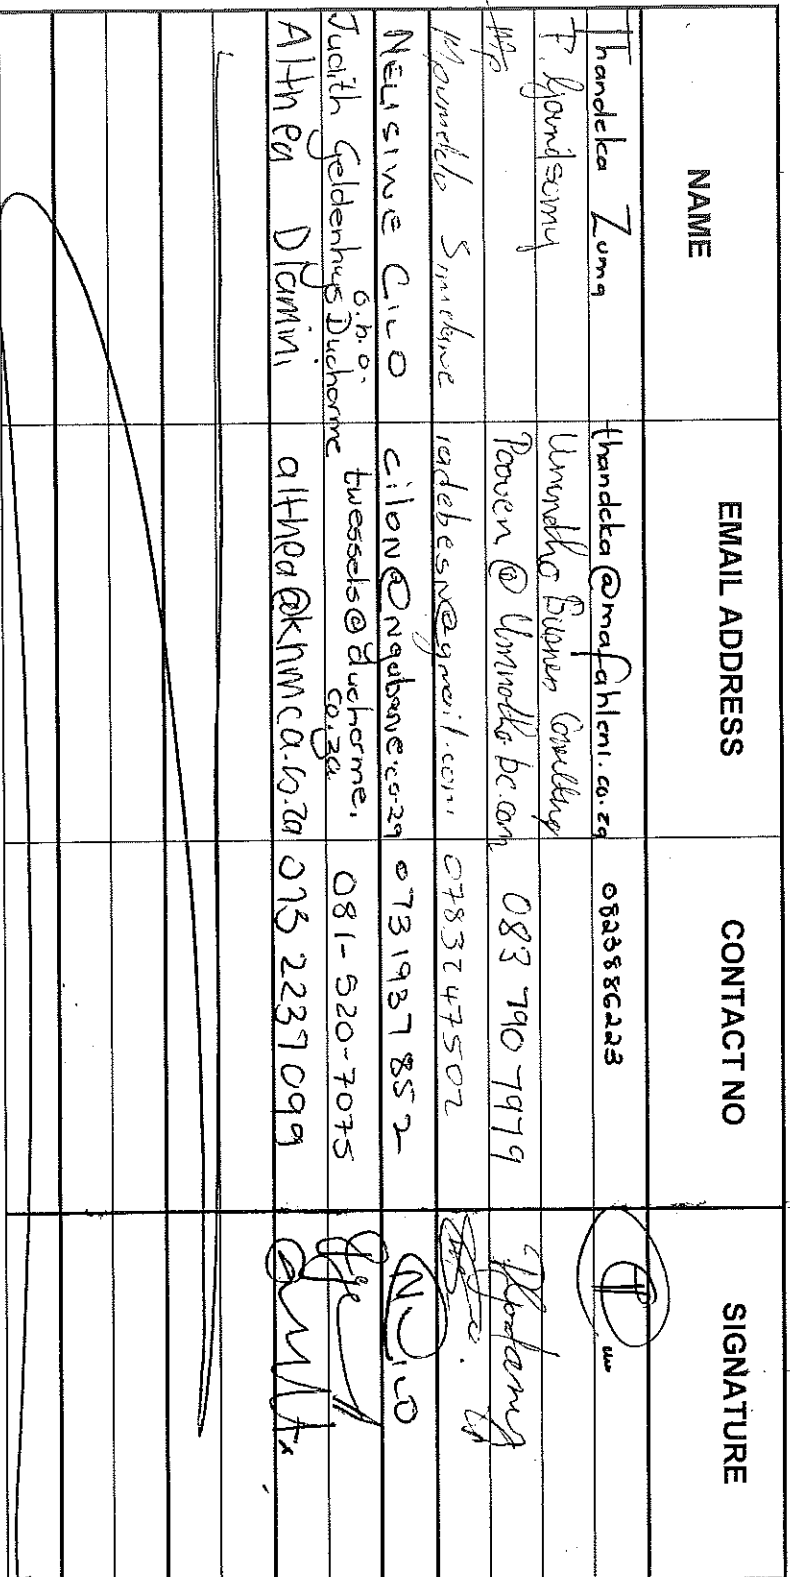 NAME EMAIL ADDRESS CONTACT NO SIGNATURE
Thandeka Zuma thandeka@mafahleni.co.za 0823886223
P. Govindsamy Umnotho Business Consulting
Pooven @ Umnotho bc.com 083 790 7979
Simelane tadebesn@gmail.com 0783247502
NELISIWE CILO cilon@ngubane.co.za 0731937852 NCILO
o.b.o.
Judith Geldenhuys Ducharme twessels@ducharme. 081-520-7075
co.za
Althea Dlamini althea@khmca.co.za 073 2237099